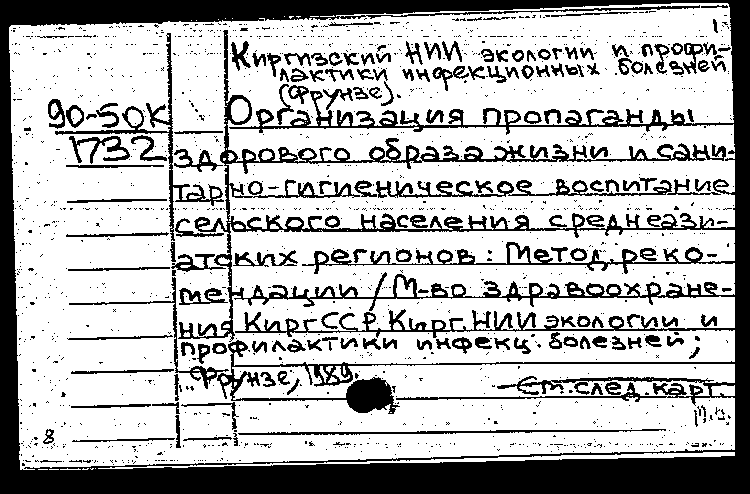 1
Киргизский НИИ экологии и профи-
лактики инфекционных болезней
(Фрунзе).
90-50К
1732
Организация пропаганды
здорового образа жизни и сани-
тарно-гигиеническое воспитание
сельского населения среднеази-
атских регионов: Метод. реко-
мендации / М-во здравоохране-
ния КиргССР, Кирг. НИИ экологии и
профилактики инфекц. болезней;
Фрунзе, 1989.
См. след. карт.
8